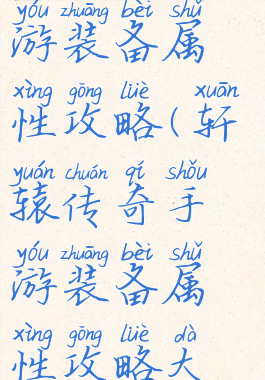 yóu zhuāng bèi shǔ
游装备属
xìng gōng lüè xuān
性攻略(轩
yuán chuán qí shǒu
辕传奇手
yóu zhuāng bèi shǔ
游装备属
xìng gōng lüè dà
性攻略大